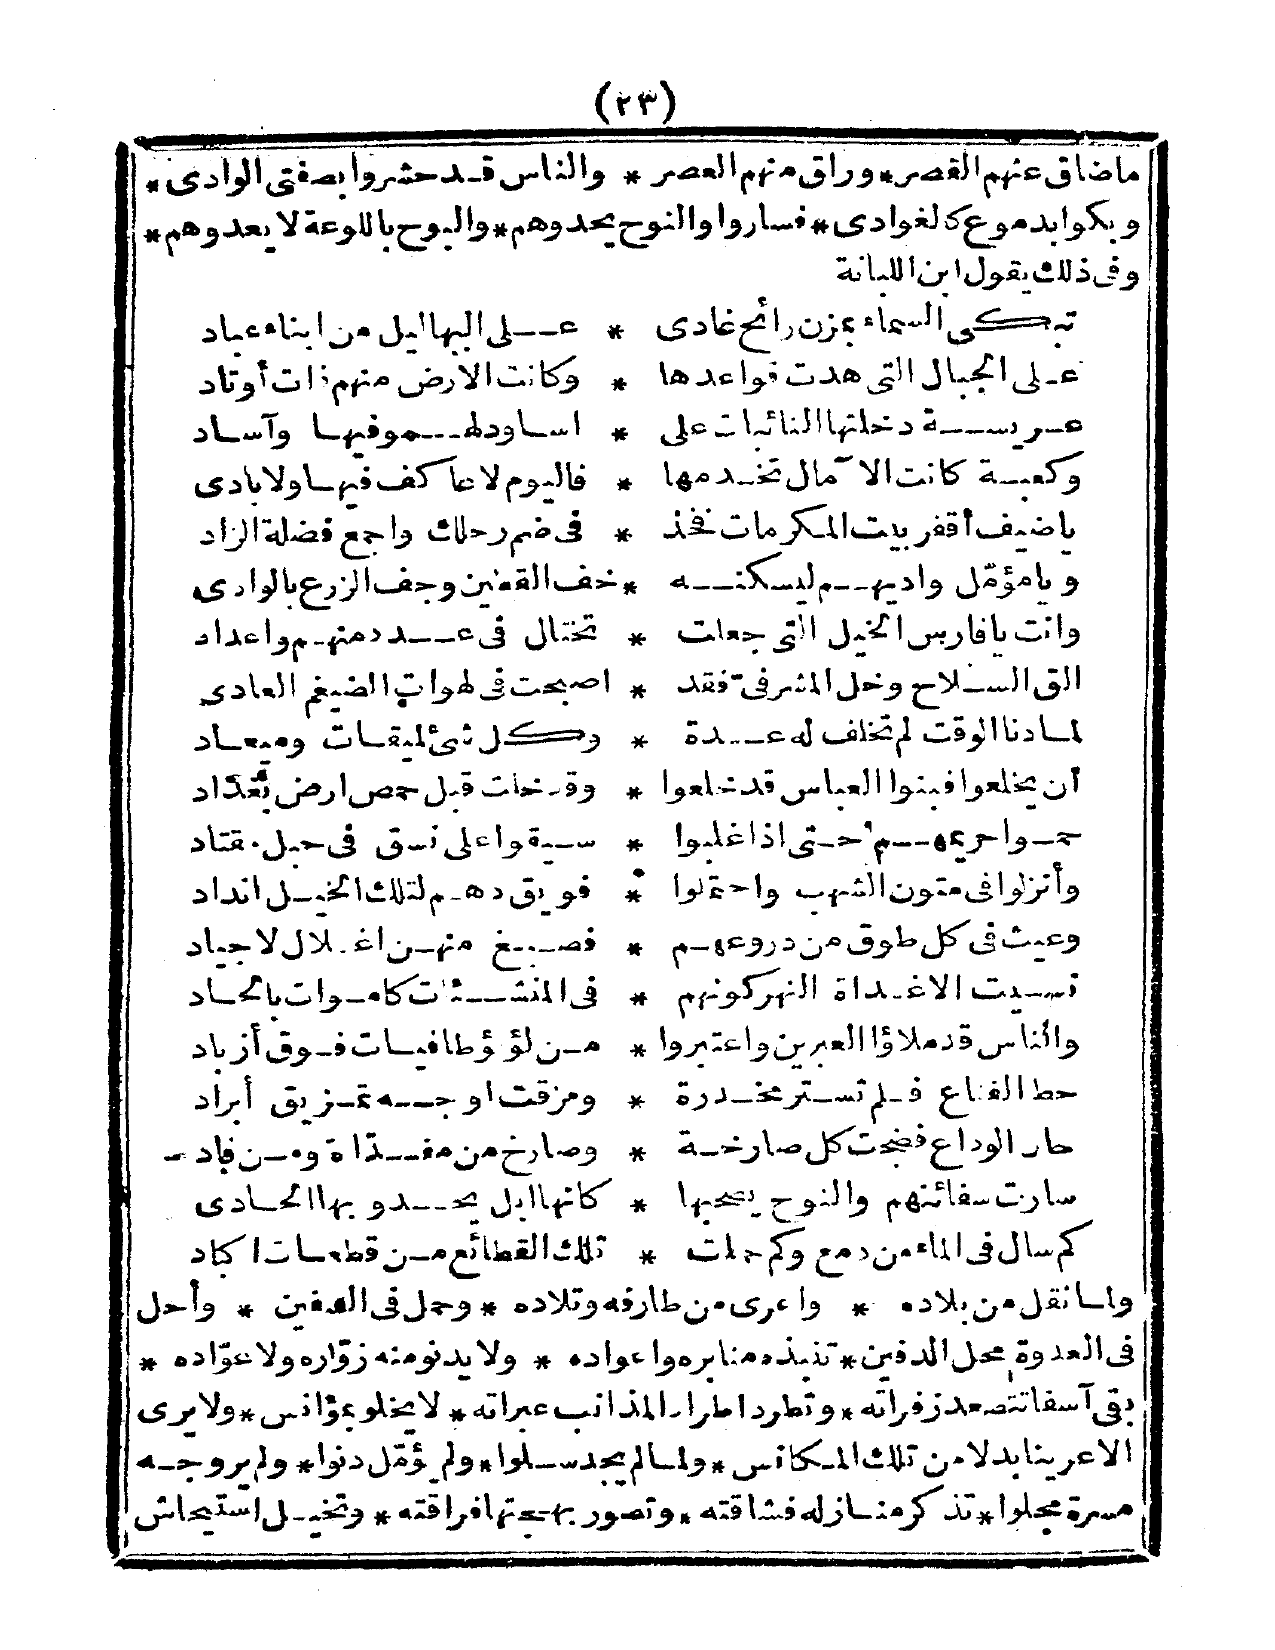 (٢٣)
ماضاق عنهم القصر * وراق منهم العصر * والناس قد حشروا بضفتى الوادى *
وبكوا بدموع كالغوادى * فساروا والنوح يحدوهم * والبوح باللوعة لا يعدوهم *
وفى ذلك يقول ابن اللبانة
تبكى السماء بمزن رائح غادى * على البهاليل من ابناء عباد
على الجبال التى هدت قواعدها * وكانت الارض منهم ذات أوتاد
عريسة دخلتها النائبات على * اساود لهمو فيها وآساد
وكعبة كانت الآمال تخدمها * فاليوم لا عاكف فيها ولا بادى
ياضيف أقفر بيت المكرمات فخذ * فى ضم رحلك واجمع فضلة الزاد
ويامؤمّل واديهم ليسكنه * خف القطين وجف الزرع بالوادى
وانت يافارس الخيل التى جعلت * تختال فى عدد منهم واعداد
الق السلاح وخل المشرفى فقد * اصبحت فى لهوات الضيغم العادى
لمادنا الوقت لم تخلف له عدة * وكل شئ لميقات وميعاد
ان يخلعوا فبنوا العباس قد خلعوا * وقد خلت قبل حمص ارض بغداد
حموا حريمهم حتى اذا غلبوا * سيقوا على نسق فى حبل مقتاد
وأنزلوا فى متون الشهب واحتملوا * فويق دهم لتلك الخيل انداد
وعيث فى كل طوق من دروعهم * فصيغ منهن اغلال لاجياد
نسيت الاغداة النهر كونهم * فى المنشئات كاموات بالحاد
والناس قد ملاؤا العبرين واعتبروا * من لؤلؤ طافيات فوق أزباد
حط القناع فلم تستر مخدرة * ومزقت اوجه تمزيق أبراد
حان الوداع فضجت كل صارخة * وصارخ من مفداة ومن فاد
سارت سفائنهم والنوح يصحبها * كانها ابل يحدو بها الحادى
كم سال فى الماء من دمع وكم حملت * تلك القطائع من قطعات اكاد
ولما نقل من بلاده * واعرى من طارفه وتلاده * وحمل فى السفين * وأحل
فى العدوة محل الدفين * تنبذه منابره واعواده * ولا يدنو منه زوّاره ولا عوّاده *
بقى آسفا تتصعد زفراته * وتطرد اطراد المذانب عبراته * لا يخلو بمؤانس * ولا يرى
الا عرينا بدلا من تلك المكانس * ولما لم يجد سلوا * ولم يؤمّل دنوا * ولم ير وجه
مسرة مجلوا * تذكر منازله فشاقته * وتصور بهجتها فراقته * وتخيل استيحاش